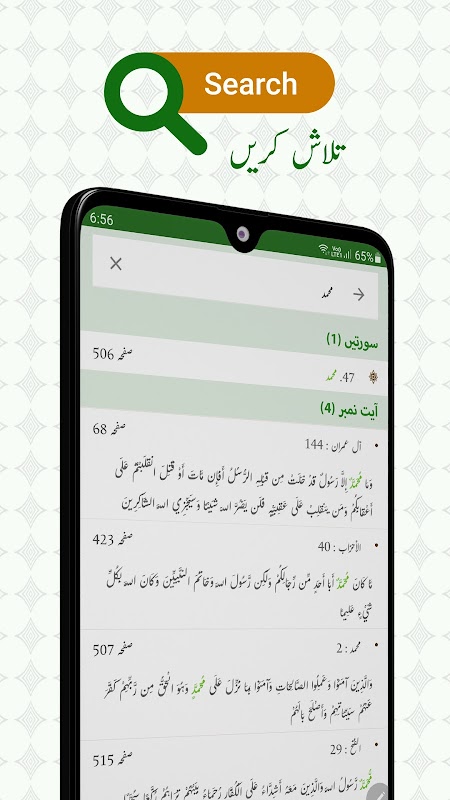 Search
تلاش کریں
6:56
65%
محمد
سورتیں (1)
47. محمد
صفحہ 506
آیت نمبر (4)
آل عمران : 144
صفحہ 68
وَمَا مُحَمَّدٌ إِلَّا رَسُولٌ قَدْ خَلَتْ مِن قَبْلِهِ الرُّسُلُ أَفَإِن مَّاتَ أَوْ قُتِلَ انْقَلَبْتُمْ عَلَى
أَعْقَابِكُمْ وَمَن يَنقَلِبْ عَلَى عَقِبَيْهِ فَلَن يَضُرَّ اللهَ شَيْئًا وَسَيَجْزِي اللهُ الشَّاكِرِينَ
الأحزاب : 40
صفحہ 423
مَّا كَانَ مُحَمَّدٌ أَبَا أَحَدٍ مِّن رِّجَالِكُمْ وَلَكِن رَّسُولَ اللهِ وَخَاتَمَ النَّبِيِّينَ وَكَانَ اللهُ بِكُلِّ
شَيْءٍ عَلِيمًا
محمد : 2
صفحہ 507
وَالَّذِينَ آمَنُوا وَعَمِلُوا الصَّالِحَاتِ وَآمَنُوا بِمَا نُزِّلَ عَلَى مُحَمَّدٍ وَهُوَ الْحَقُّ مِن رَّبِّهِمْ كَفَّرَ
عَنْهُمْ سَيِّئَاتِهِمْ وَأَصْلَحَ بَالَهُمْ
الفتح : 29
صفحہ 515
مُّحَمَّدٌ رَّسُولُ اللهِ وَالَّذِينَ مَعَهُ أَشِدَّاءُ عَلَى الْكُفَّارِ رُحَمَاءُ بَيْنَهُمْ تَرَاهُمْ رُكَّعًا سُجَّدًا